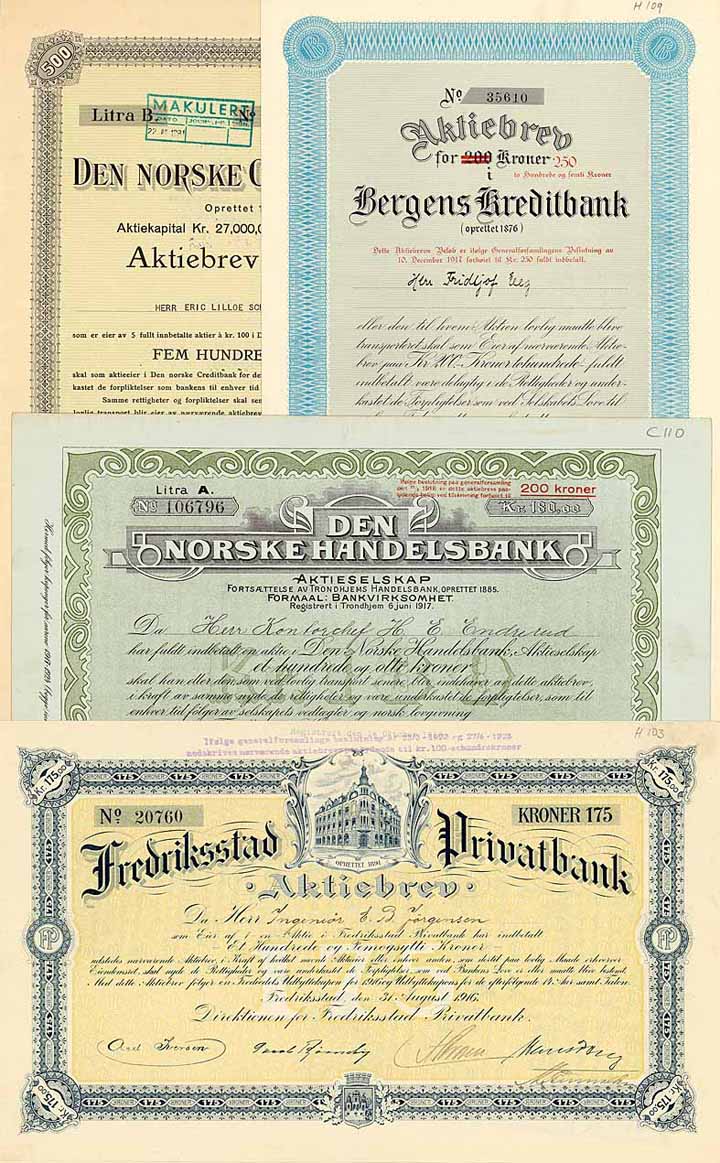 500
Litra B. No
MAKULERT
DATO JOURNAL NR. SIGN.
DEN NORSKE C
Oprettet 1
Aktiekapital Kr. 27,000,0
Aktiebrev
HERR ERIC LILLOE SC
som er eier av 5 fullt innbetalte aktier à kr. 100 i D
FEM HUNDRE
skal som aktieeier i Den norske Creditbank for de
kastet de forpliktelser som bankens til enhver tid
Samme rettigheter og forpliktelser skal sen
lovlig transport blir eier av nærværende aktiebrev
H 109
No 35610
Aktiebrev
for 200 Kroner 250
to Hundrede og femti Kroner
i
Bergens Kreditbank
(oprettet 1876)
Dette Aktiebrevs Beløb er ifølge Generalforsamlingens Beslutning av
10. December 1917 forhøiet til Kr. 250 fuldt indbetalt.
Herr Fridtjof Eeg
eller den til hvem Aktien lovlig maatte blive
transporteret skal som Eier af nærværende Aktie-
brev paa Kr. 200 - Kroner to hundrede - fuldt
indbetalt være delagtig i de Rettigheder og under-
kastet de Forpligtelser som ved Selskabets Love til
C 110
Litra A.
No 106796
Ifølge beslutning paa generalforsamling
1918 er dette aktiebrevs paa-
200 kroner
Kr. 180,00
DEN
NORSKE HANDELSBANK
AKTIESELSKAP
FORTSÆTTELSE AV TRONDHJEMS HANDELSBANK, OPRETTET 1885.
FORMAAL: BANKVIRKSOMHET.
Registrert i Trondhjem 6 juni 1917.
Da Herr Kontorchef H. E. Endrerud
har fuldt indbetalt en aktie i Den Norske Handelsbank, Aktieselskap
et hundrede og otti kroner
skal han eller den, som ved lovlig transport senere blir indehaver av dette aktiebrev,
i kraft av samme nyde de rettigheter og være underkastet de forpligtelser, som til
enhver tid følger av selskapets vedtægter og norsk lovgivning
H 103
Ifølge generalforsamlings beslutning
nedskrives nærværende aktiebrevs pålydende til kr. 100-ethundrekroner
Kr. 175,00
KRONER 175
No 20760
KRONER 175
OPRETTET 1891
Fredriksstad Privatbank
Aktiebrev
Da Herr Ingeniør E. B. Jørgensen
som Eier af 1 en Aktie i Fredriksstad Privatbank har indbetalt
- Et Hundrede og Femogsytti Kroner -
udstedes nærværende Aktiebrev, i Kraft af hvilket nævnte Aktieeier eller enhver anden, som dertil paa lovlig Maade erhverver
Eiendomsret, skal nyde de Rettigheder og være underkastet de Forpligtelser, som ved Bankens Love er eller maatte blive bestemt.
Med dette Aktiebrev følger en Fredjedels Udbyttekupon for 1916 og Udbyttekupons for de efterfølgende 14. Aar samt Talon.
Fredriksstad, den 31. August 1916.
Direktionen for Fredriksstad Privatbank.
Axel Iversen
FP
Kr. 175,00